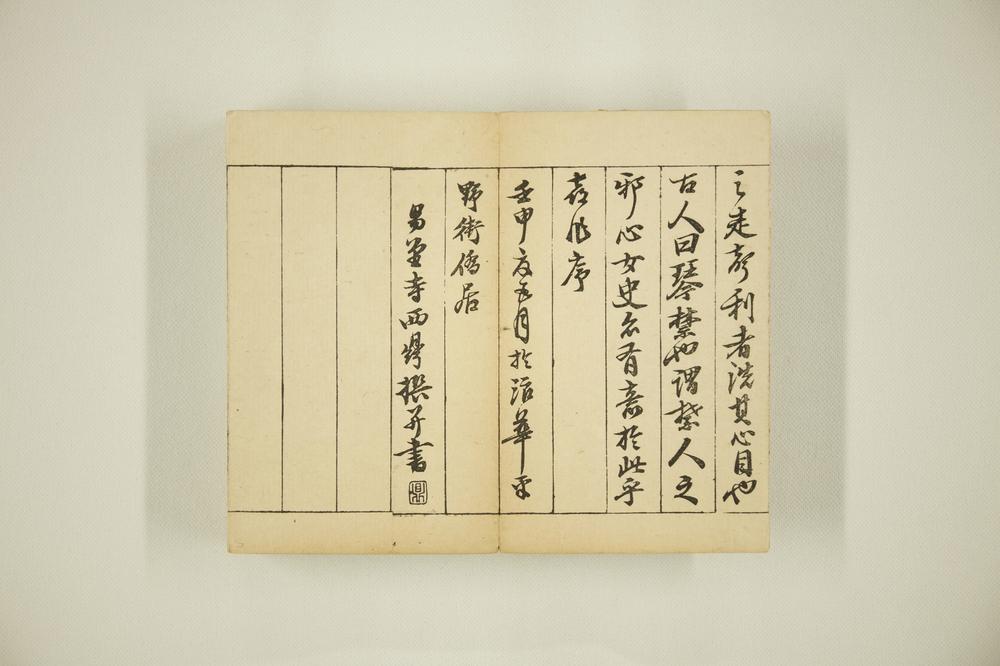 之走奔利者洗其心目也
古人曰琴禁也謂禁人之
邪心女史名有意於此乎
壬申夏五月於浯華平
野街僑居
易堂寺西鼎撰并書
鼎